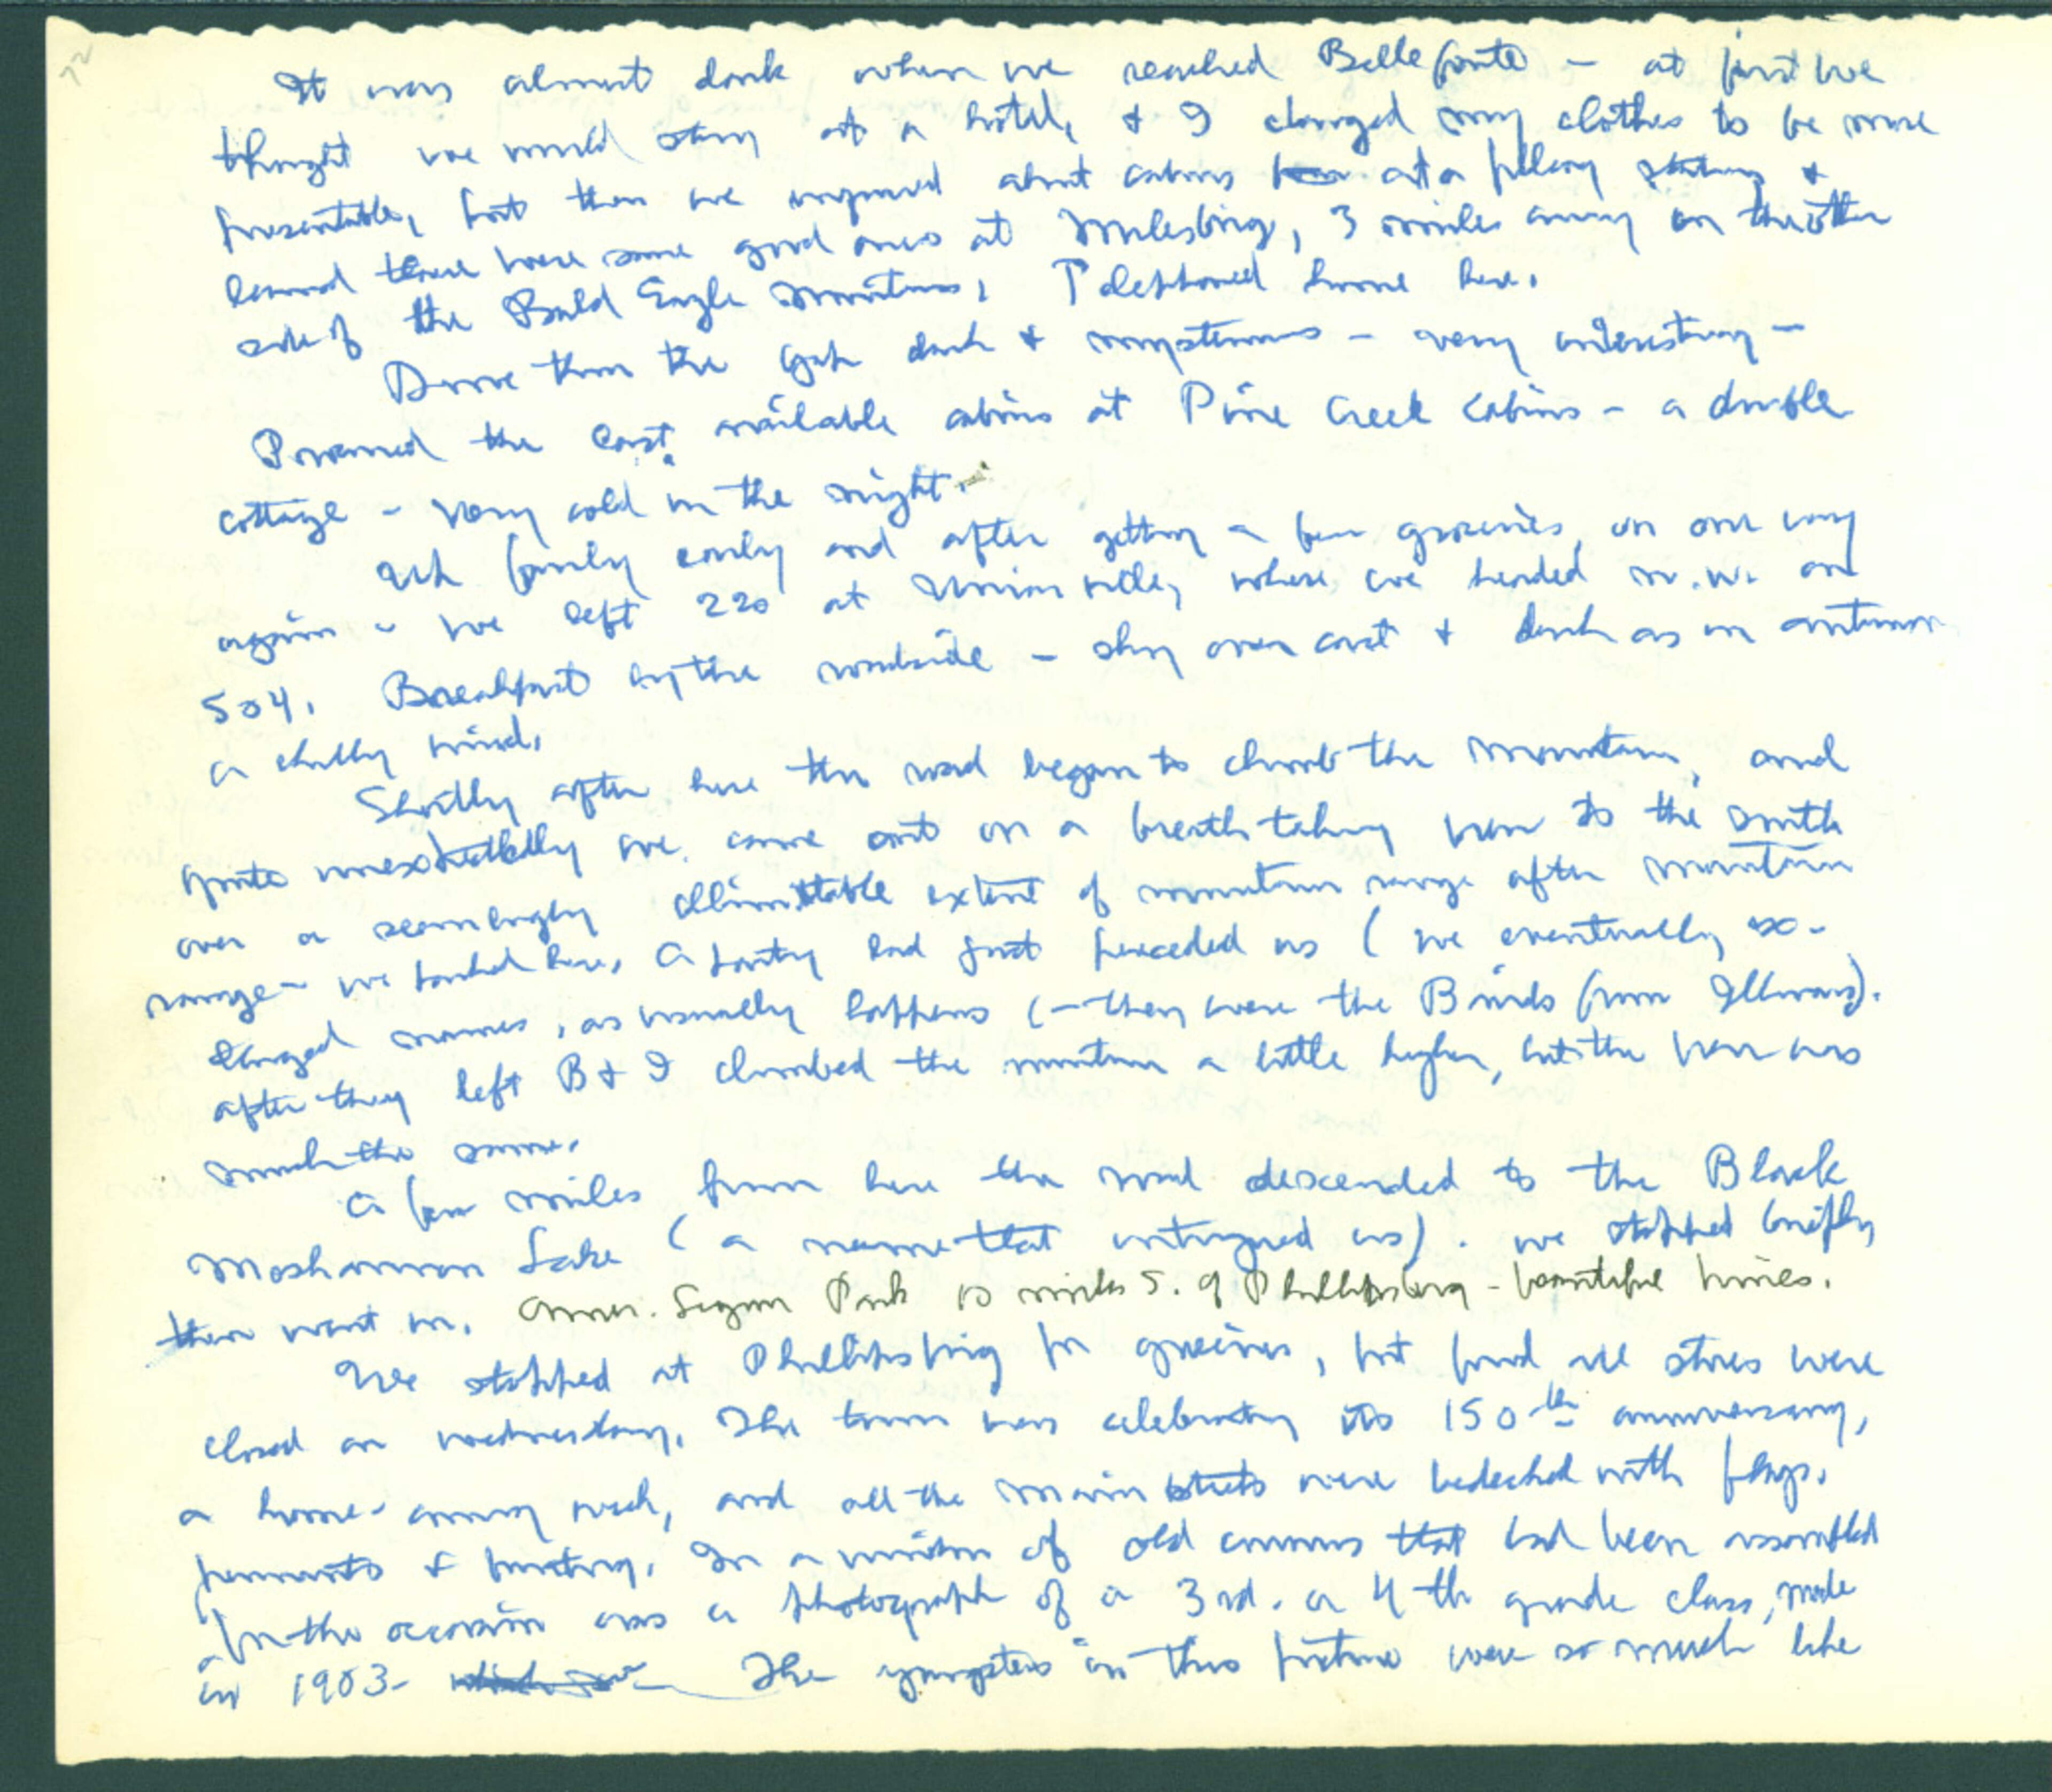 It was almost dark when we reached Bellefonte - at first we
thought we would stay at a hotel, & I changed my clothes to be more
presentable, but then we inquired about cabins at a filling station &
learned there were some good ones at Milesburg, 3 miles away on the other
side of the Bald Eagle Mountains, Telephoned home here.
Drove thru the Gap dark & mysterious - very interesting -
the last available cabins at Pine Creek Cabins - a double
cottage - very cold in the night.
Up fairly early and after getting a few groceries, on our way
again - we left 220 at Unionville, where we headed N.W. on
504. Breakfast by the roadside - sky overcast & dark as in autumn
a chilly wind.
Shortly after here the road began to climb the mountain, and
quite unexpectedly we came out on a breath taking view to the south
over a seemingly illimitable extent of mountain range after mountain
range - we parked here. A party had just preceded us (we eventually ex-
changed names, as usually happens (- they were the Birds from Illinois).
after they left B & I climbed the mountain a little higher, but the view was
much the same.
A few miles from here the road descended to the Black
Moshannon Lake (a name that intrigued us). we stopped briefly
then went on. Park 10 miles S. of Phillipsburg - beautiful homes.
We stopped at Phillipsburg for groceries, but found all stores were
closed on Wednesday. The town was celebrating its 150th anniversary,
a home-coming week, and all the main streets were bedecked with flags,
pennants & bunting. In a window of old cameras that had been assembled
for the occasion was a photograph of a 3rd. or 4th grade class, made
in 1903- The youngsters in this picture were so much like